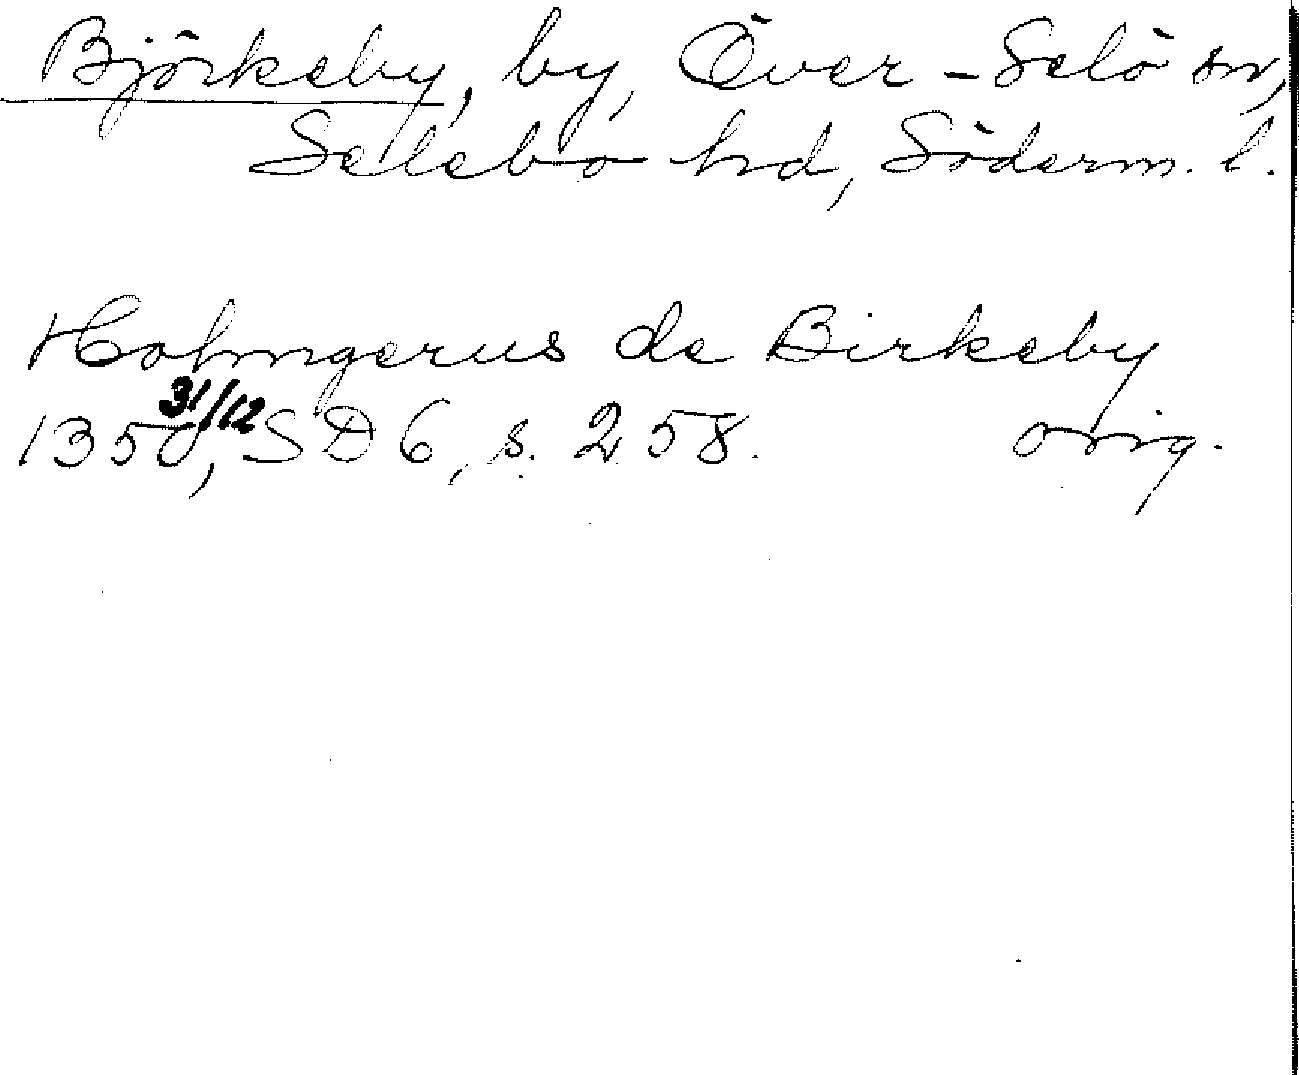 Björkeby, by, Över-Selö sn,
Selebo hd, Söderm. l.
Holmgerus de Birkeby
1350 31/12, SD 6, s. 258. orig.